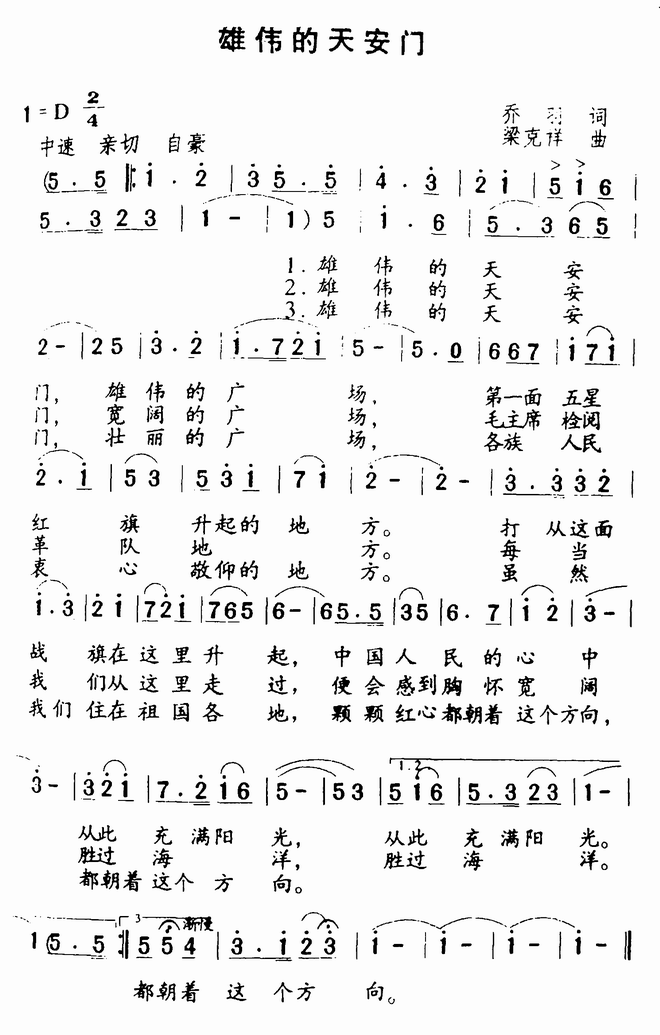 雄伟的天安门
1=D 2/4
乔羽 词
中速 亲切 自豪
梁克祥 曲
(5.5 |: 1.2 | 3 5.5 | 4.3 | 2 1 | 5 1 6 |
5.3 2 3 | 1 - | 1) 5 | 1.6 | 5.3 6 5 |
1.雄 伟 的 天 安
2.雄 伟 的 天 安
3.雄 伟 的 天 安
2 - | 2 5 | 3.2 | 1.7 2 1 | 5 - | 5.0 | 6 6 7 | 1 7 1 |
门, 雄 伟 的 广 场, 第一面 五星
门, 宽 阔 的 广 场, 毛主席 检阅
门, 壮 丽 的 广 场, 各族 人民
2.1 | 5 3 | 5 3 1 | 7 1 | 2 - | 2 - | 3.3 3 2 |
红 旗 升起的 地 方。 打 从这面
革 队 地 方。 每 当
衷 心 敬仰的 地 方。 虽 然
1.3 | 2 1 | 7 2 1 | 7 6 5 | 6 - | 6 5.5 | 3 5 | 6.7 | 1 2 | 3 - |
战 旗 在 这 里 升 起, 中 国 人 民 的 心 中
我 们 从 这 里 走 过, 便 会 感 到 胸 怀 宽 阔
我 们 住 在 祖 国 各 地, 颗 颗 红 心 都 朝 着 这 个 方 向,
3 - | 3 2 1 | 7.2 1 6 | 5 - | 5 3 | 1.2 5 1 6 | 5.3 2 3 | 1 - |
从此 充 满阳 光, 从此 充 满阳 光。
胜过 海 洋, 胜过 海 洋。
都朝着 这个 方 向。
1 (5.5 :| 3 5 5 4 渐慢 | 3.1 2 3 | 1 - | 1 - | 1 - | 1 - ||
都朝着 这 个方 向。